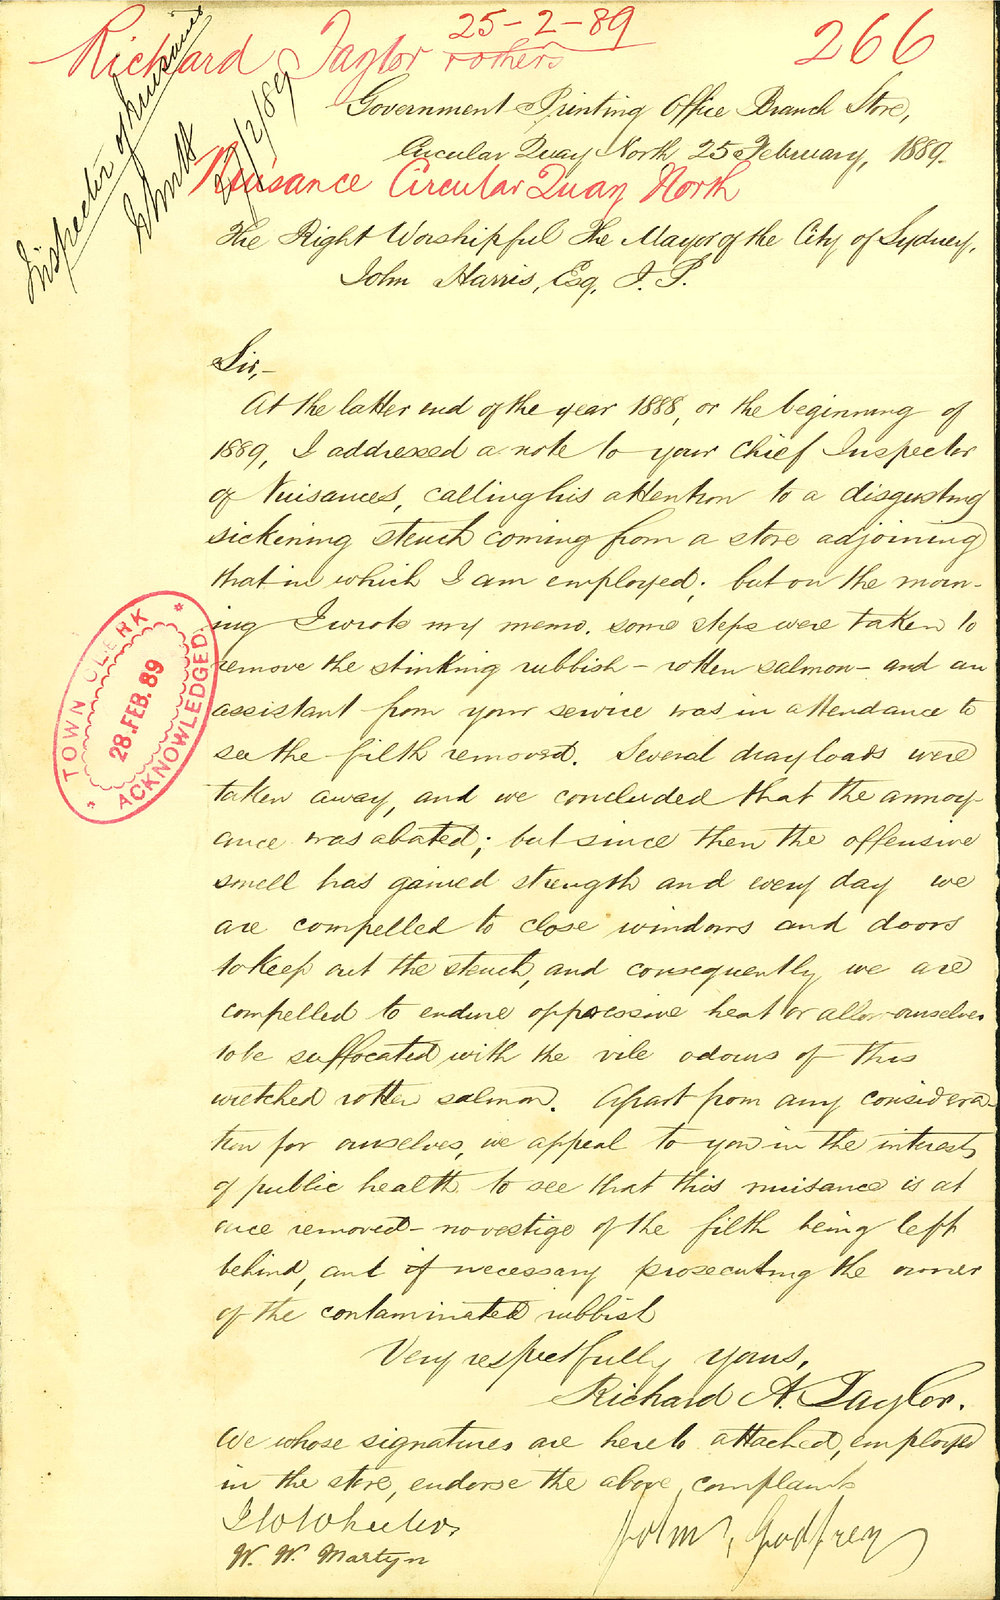 25-2-89
Richard Taylor & others
266
Inspector of Nuisances
27/2/89
Government Printing Office Branch Store,
Circular Quay North, 25 February, 1889.
Nuisance Circular Quay North
The Right Worshipful The Mayor of the City of Sydney,
John Harris, Esq, J. P.
Sir,-
At the latter end of the year 1888, or the beginning of
1889, I addressed a note to your Chief Inspector
of Nuisances, calling his attention to a disgusting
sickening stench coming from a store adjoining
that in which I am employed; but on the morn-
ing I wrote my memo. some steps were taken to
remove the stinking rubbish - rotten salmon - and an
assistant from your service was in attendance to
see the filth removed. Several dray loads were
taken away, and we concluded that the annoy-
ance was abated; but since then the offensive
smell has gained strength and every day we
are compelled to close windows and doors
to keep out the stench, and consequently we are
compelled to endure oppressive heat or allow ourselves
to be suffocated with the vile odours of this
wretched rotten salmon. Apart from any considera-
tion for ourselves, we appeal to you in the interests
of public health to see that this nuisance is at
once removed - no vestige of the filth being left
behind, and if necessary prosecuting the owner
of the contaminated rubbish
Very respectfully yours,
Richard A. Taylor.
We whose signatures are hereto attached, employed
in the store, endorse the above complaint
Wheeler
W. W. Martyn
John Godfrey
TOWN CLERK
28. FEB. 89
ACKNOWLEDGED